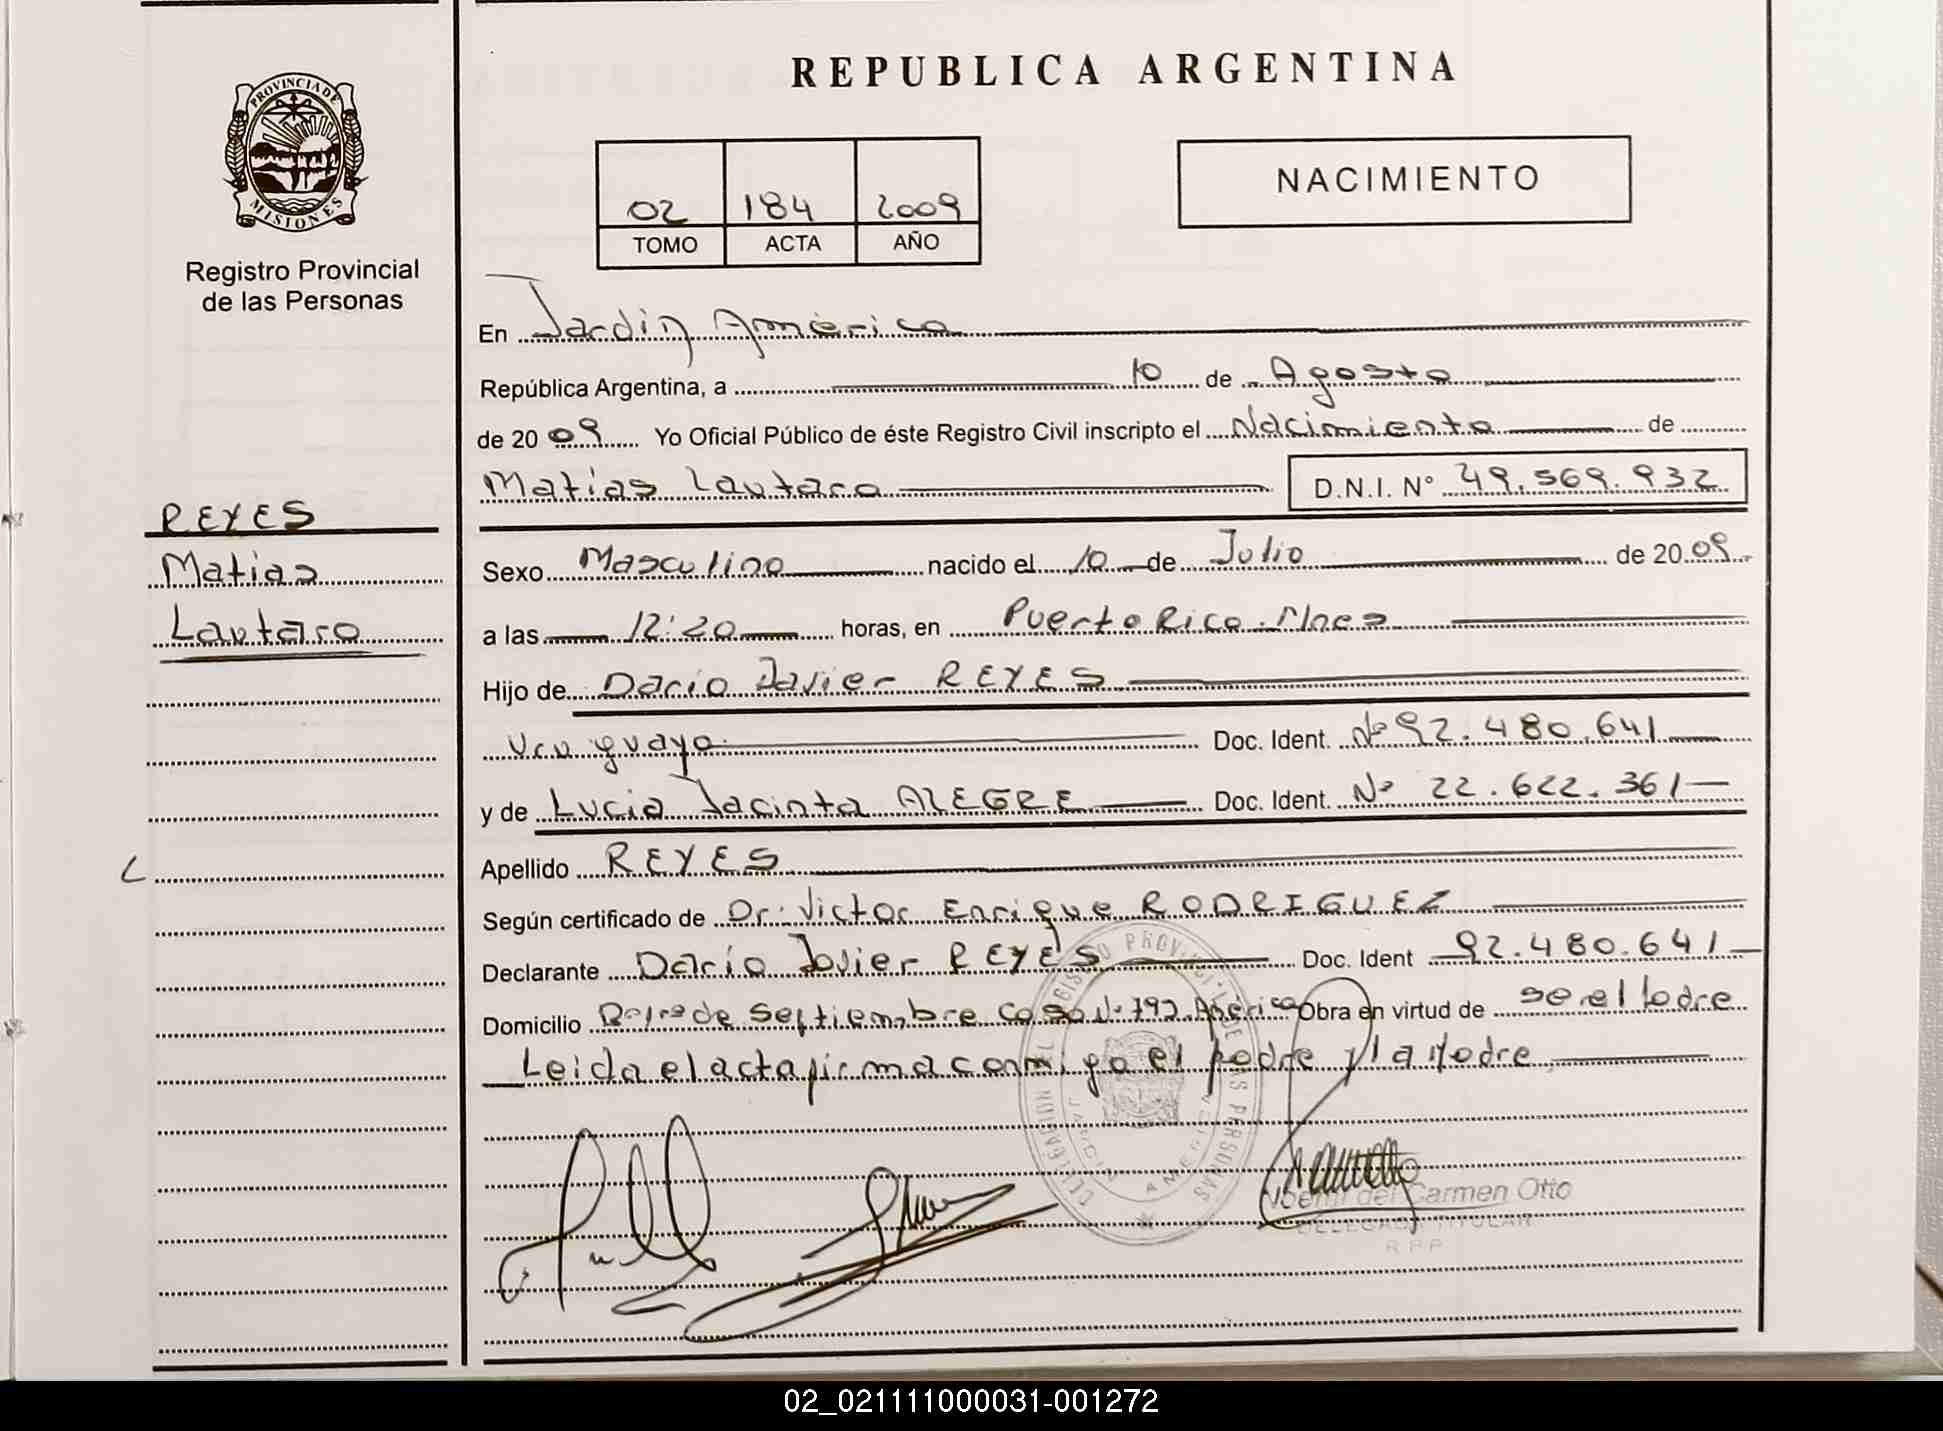 REPUBLICA ARGENTINA
PROVINCIA DE
MISIONES
Registro Provincial
de las Personas
02 184 2009
TOMO ACTA AÑO
NACIMIENTO
En Jardin América
República Argentina, a 10 de Agosto
de 20 09 Yo Oficial Público de éste Registro Civil inscripto el Nacimiento de
Matias Lautaro D.N.I. N° 49.569.932
REYES
Matias
Lautaro
Sexo Masculino nacido el 10 de Julio de 20 09
a las 12:20 horas, en Puerto Rico. Mnes
Hijo de Dario Javier REYES
Uruguayo Doc. Ident. Nº 92.480.641
y de Lucia Jacinta ALEGRE Doc. Ident. Nº 22.622.361
Apellido REYES
Según certificado de Dr. Victor Enrique RODRIGUEZ
Declarante Darío Javier REYES Doc. Ident 92.480.641
Domicilio de Septiembre Casa Nº 792 América Obra en virtud de ser el Padre
Leida el acta firma conmigo el padre y la Madre
DELEGACION REGISTRO PROVINCIAL DE LAS PERSONAS
JARDIN AMERICA
del Carmen Otto
DELEGADA TITULAR
R P P
02_021111000031-001272